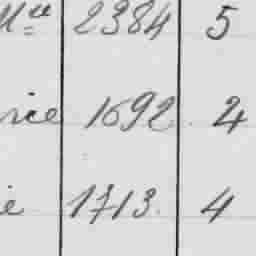 Mce 2384 5
rice 1692 2
ie 1713. 4